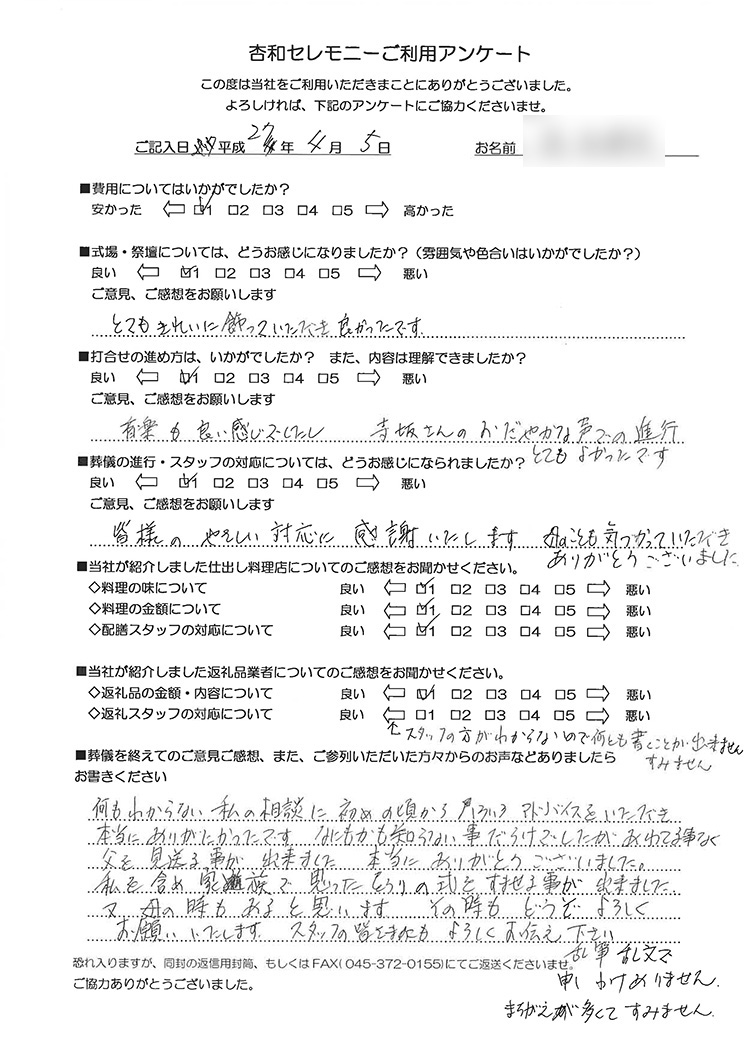 杏和セレモニーご利用アンケート
この度は当社をご利用いただきまことにありがとうございました。
よろしければ、下記のアンケートにご協力くださいませ。
ご記入日 平成 27 年 4 月 5 日 お名前
■費用についてはいかがでしたか？
安かった ⇦ ☑1 □2 □3 □4 □5 ⇨ 高かった
■式場・祭壇については、どうお感じになりましたか？（雰囲気や色合いはいかがでしたか？）
良い ⇦ ☑1 □2 □3 □4 □5 ⇨ 悪い
ご意見、ご感想をお願いします
とてもきれいに飾っていただき良かったです。
■打合せの進め方は、いかがでしたか？ また、内容は理解できましたか？
良い ⇦ ☑1 □2 □3 □4 □5 ⇨ 悪い
ご意見、ご感想をお願いします
音楽も良い感じでしたし 寺坂さんのおだやかな声での進行
とてもよかったです
■葬儀の進行・スタッフの対応については、どうお感じになられましたか？
良い ⇦ ☑1 □2 □3 □4 □5 ⇨ 悪い
ご意見、ご感想をお願いします
皆様のやさしい対応に感謝いたします 母のことも気づかっていただき
ありがとうございました
■当社が紹介しました仕出し料理店についてのご感想をお聞かせください。
◇料理の味について 良い ⇦ ☑1 □2 □3 □4 □5 ⇨ 悪い
◇料理の金額について 良い ⇦ ☑1 □2 □3 □4 □5 ⇨ 悪い
◇配膳スタッフの対応について 良い ⇦ ☑1 □2 □3 □4 □5 ⇨ 悪い
■当社が紹介しました返礼品業者についてのご感想をお聞かせください。
◇返礼品の金額・内容について 良い ⇦ ☑1 □2 □3 □4 □5 ⇨ 悪い
◇返礼スタッフの対応について 良い ⇦ □1 □2 □3 □4 □5 ⇨ 悪い
↑スタッフの方がわからないので何とも書くことが出来ません
すみません
■葬儀を終えてのご意見ご感想、また、ご参列いただいた方々からのお声などありましたら
お書きください
何もわからない私の相談に初めの頃から いろいろアドバイスをいただき
本当にありがたかったです なにもかも知らない事だらけでしたがあわてる事なく
父を見送る事が出来ました 本当にありがとうございました。
私を含め家族で思ったとうりの式をすませる事が出来ました
又 母の時もあると思います その時もどうぞよろしく
お願いいたします スタッフの皆さまにもよろしくお伝え下さい
乱筆乱文で
申しわけありません。
まちがえが多くてすみません。
恐れ入りますが、同封の返信用封筒、もしくはFAX(045-372-0155)にてご返送くださいませ。
ご協力ありがとうございました。